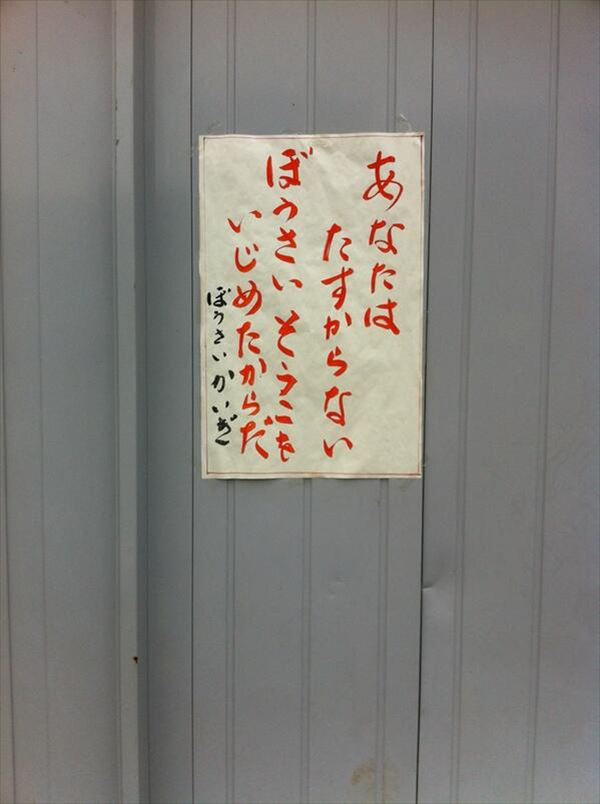 あなたは
たすからない
ぼうさいそうこを
いじめたからだ
ぼうさいかいぎ